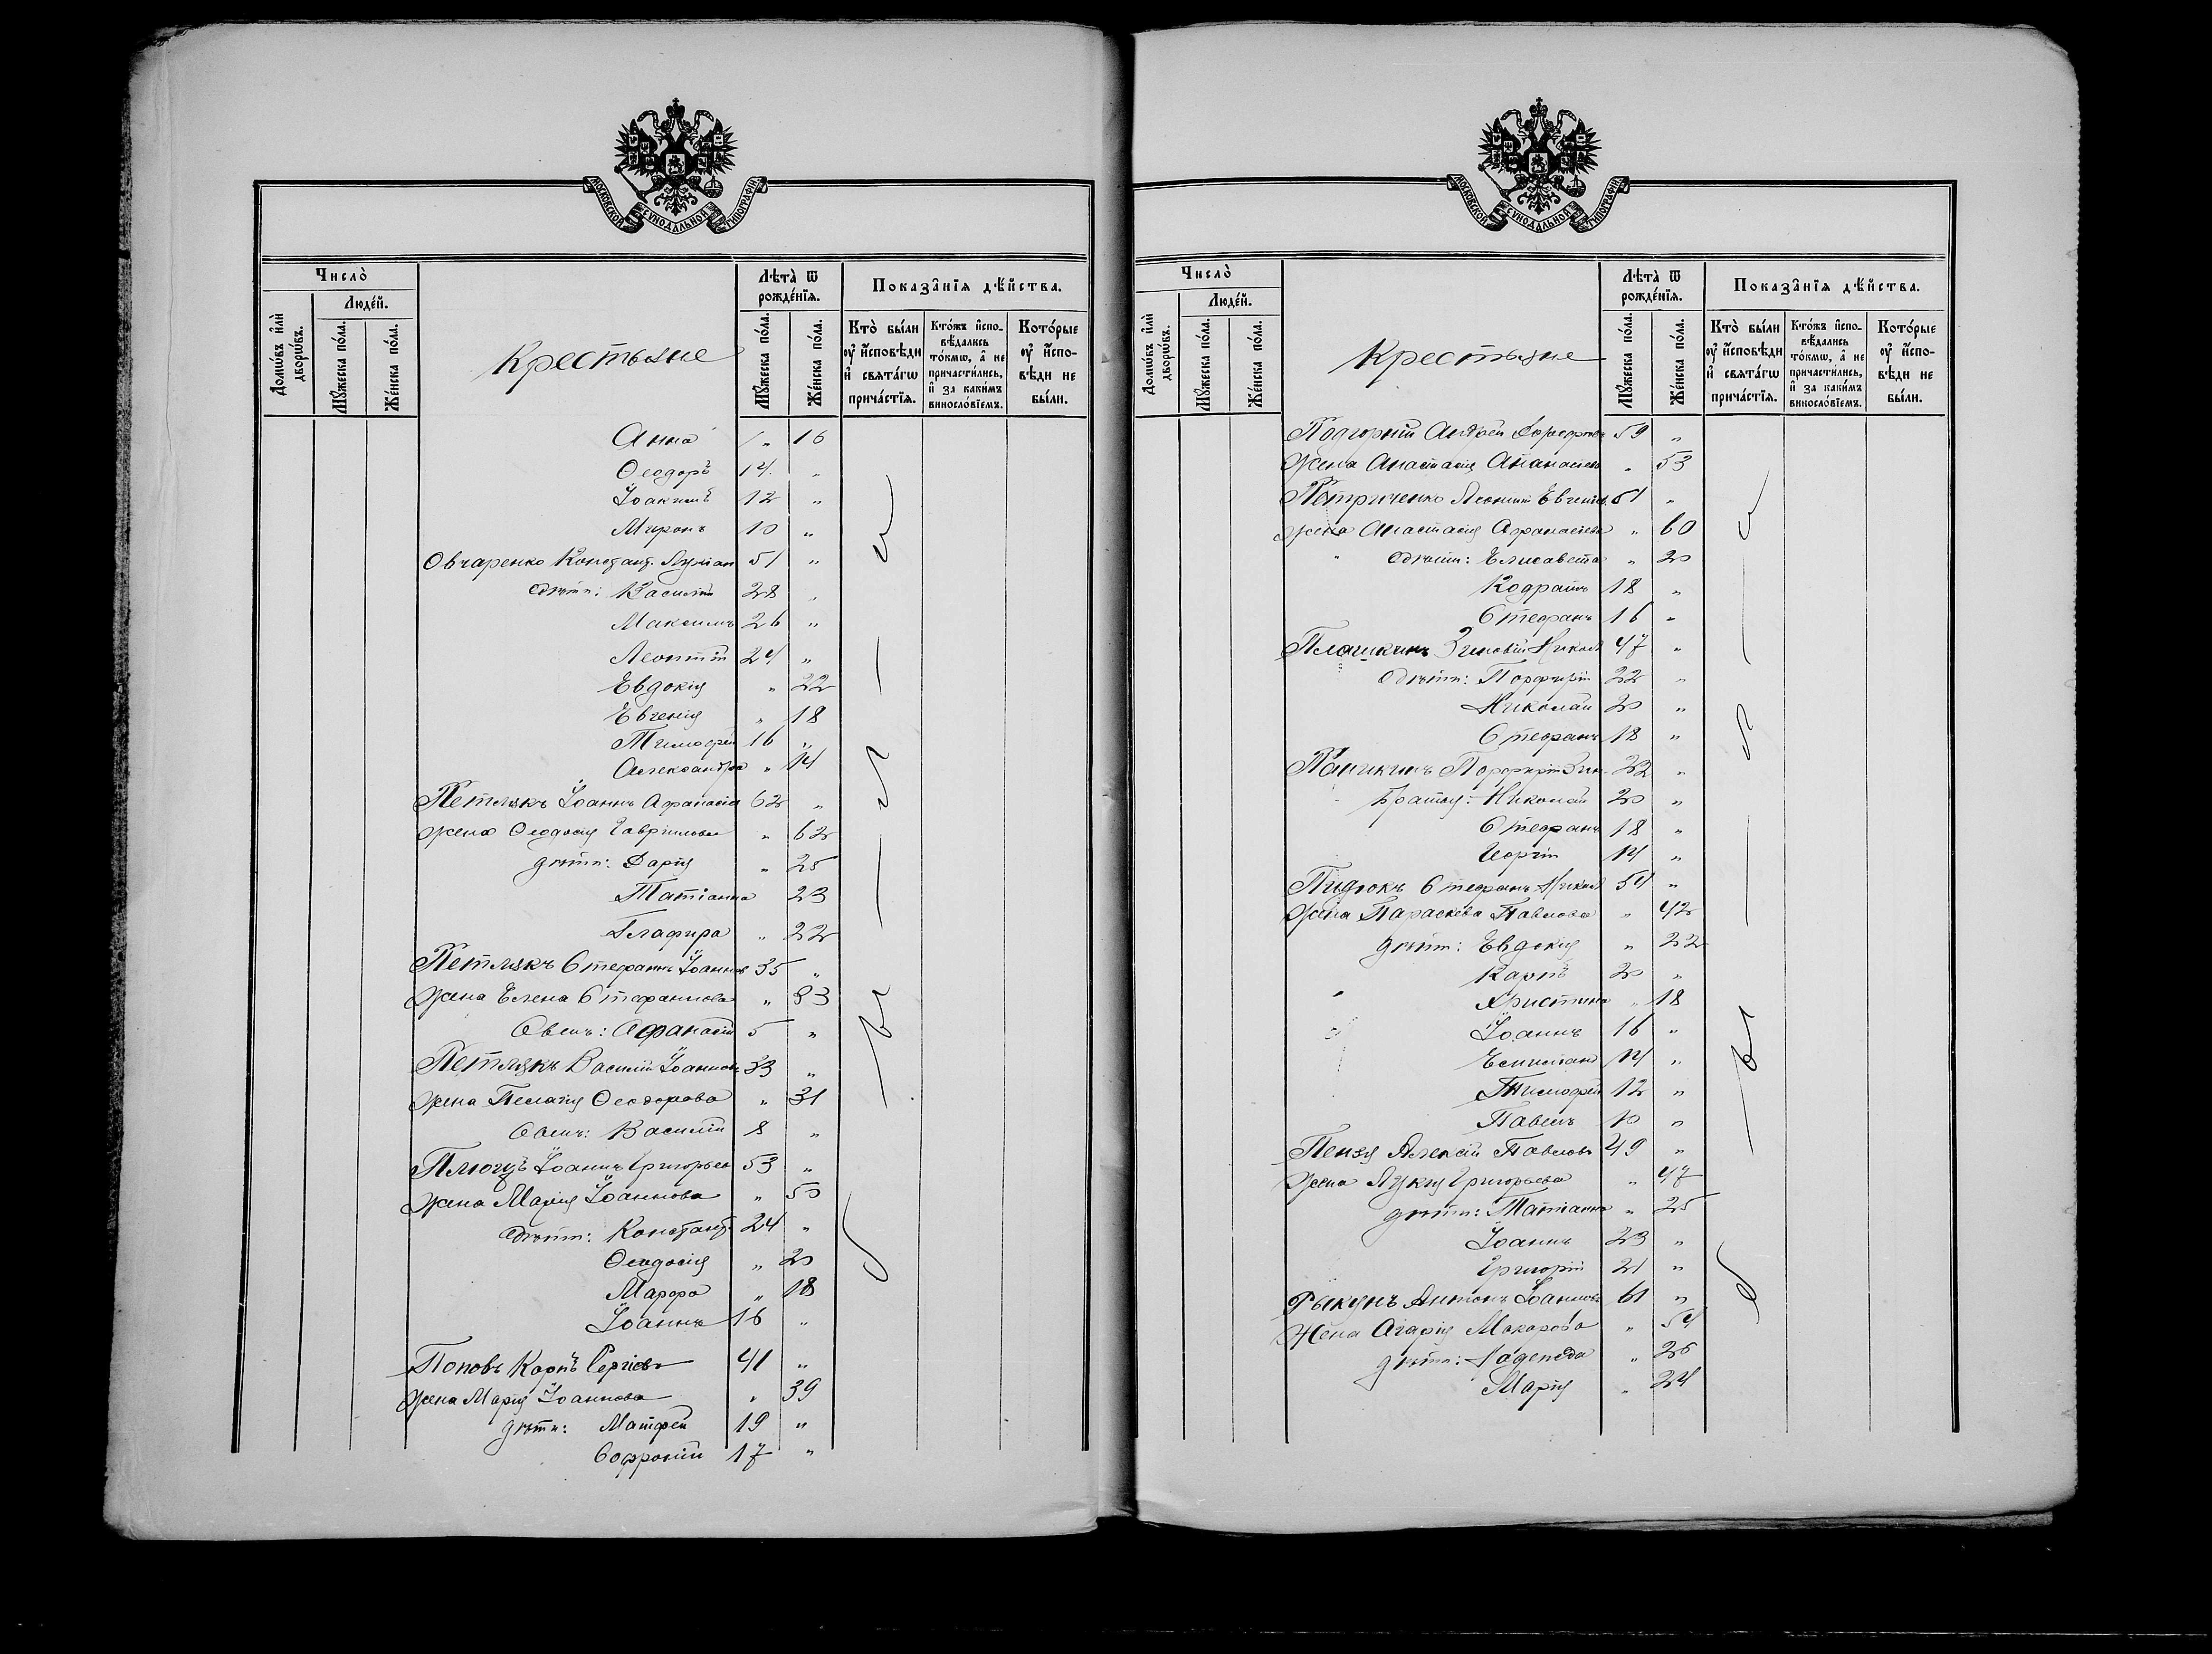 МОСКОВСКОЙ СѴНОДАЛЬНОЙ ТИПОГРАФІИ
Число̀
Людéй.
Домѡ́въ и҆лѝ дворѡ́въ.
Мꙋ́жеска по́ла.
Же́нска по́ла.
Крестьяне
Лѣта̀ ѿ рожде́нїѧ.
Мꙋ́жеска по́ла.
Же́нска по́ла.
Показа̂нїѧ дѣ́йства.
Кто̀ бы́ли ᲂу҆ и҆сповѣди и҆ свѧта́гѡ прича́стїѧ.
Кто́жъ и҆спо-вѣдались то́кмѡ, а҆ не причасти́лись, и҆ за каки́мъ винословїемъ.
Кото́рые ᲂу҆ и҆спо-вѣди не бы́ли.
Анна " 16
Ѳеодоръ 14 "
Іоакимъ 12 "
Миронъ 10 "
Овчаренко Констант. Лукіан 51 "
дѣти: Василій 28 "
Максимъ 26 "
Леонтій 24 "
Евдокія " 22
Евгенія " 18
Тимофей 16 "
Александра " 14
Петлякъ Іоаннъ Афанасіев 62 "
жена Ѳеодосія Гавріилова " 62
дѣти: Дарія " 25
Татіанна 23
Глафира " 22
Петлякъ Стефанъ Іоаннов 35 "
жена Елена Стефанова " 33
Сынъ: Афанасій 5 "
Петлякъ Василій Іоаннов 33 "
жена Пелагія Ѳеодорова " 31
Сынъ: Василій 8 "
Іоаннъ Григорьев 53 "
жена Марія Іоаннова " 50
дѣти: Констант. 24 "
Ѳеодосія " 20
Марфа " 18
Іоаннъ 16 "
Поповъ Карпъ Сергіевъ 41 "
жена Марія Іоаннова " 39
дѣти: Матфей 19 "
Софроній 17 "
МОСКОВСКОЙ СѴНОДАЛЬНОЙ ТИПОГРАФІИ
Число̀
Людéй.
Домѡ́въ и҆лѝ дворѡ́въ.
Мꙋ́жеска по́ла.
Же́нска по́ла.
Крестьяне
Лѣта̀ ѿ рожде́нїѧ.
Мꙋ́жеска по́ла.
Же́нска по́ла.
Показа̂нїѧ дѣ́йства.
Кто̀ бы́ли ᲂу҆ и҆сповѣди и҆ свѧта́гѡ прича́стїѧ.
Кто́жъ и҆спо-вѣдались то́кмѡ, а҆ не причасти́лись, и҆ за каки́мъ винословїемъ.
Кото́рые ᲂу҆ и҆спо-вѣди не бы́ли.
Подгорній Андрей 59 "
Жена Анастасія " 53
Петриченко Леонтій Евгеніев. 61 "
жена Анастасія Афанасіева " 60
дѣти: Елисавета " 20
Кодратъ 18 "
Стефанъ 16 "
Зиновій Никол 47 "
дѣти: Порфирій 22 "
Николай 20 "
Стефанъ 18 "
Порфирій Зин. 22 "
братья: Николай 20 "
Стефанъ 18 "
Георгій 14 "
Пидюкъ Стефанъ Никол 54 "
Жена Параскева Павлова " 42
дѣти: Евдокія " 22
Карпъ 20 "
Христина " 18
Іоаннъ 16 "
Емиліан 14 "
Тимофей 12 "
Павелъ 10 "
Пензя Алексій Павловъ 49 "
Жена Лукія Григорьева " 47
дѣти: Татіанна " 25
Іоаннъ 23 "
Григорій 21 "
Рыкунъ Антонъ Іоаннов 61 "
Жена Агарія Макарова " 54
дѣти: Надежда " 26
Марія " 24